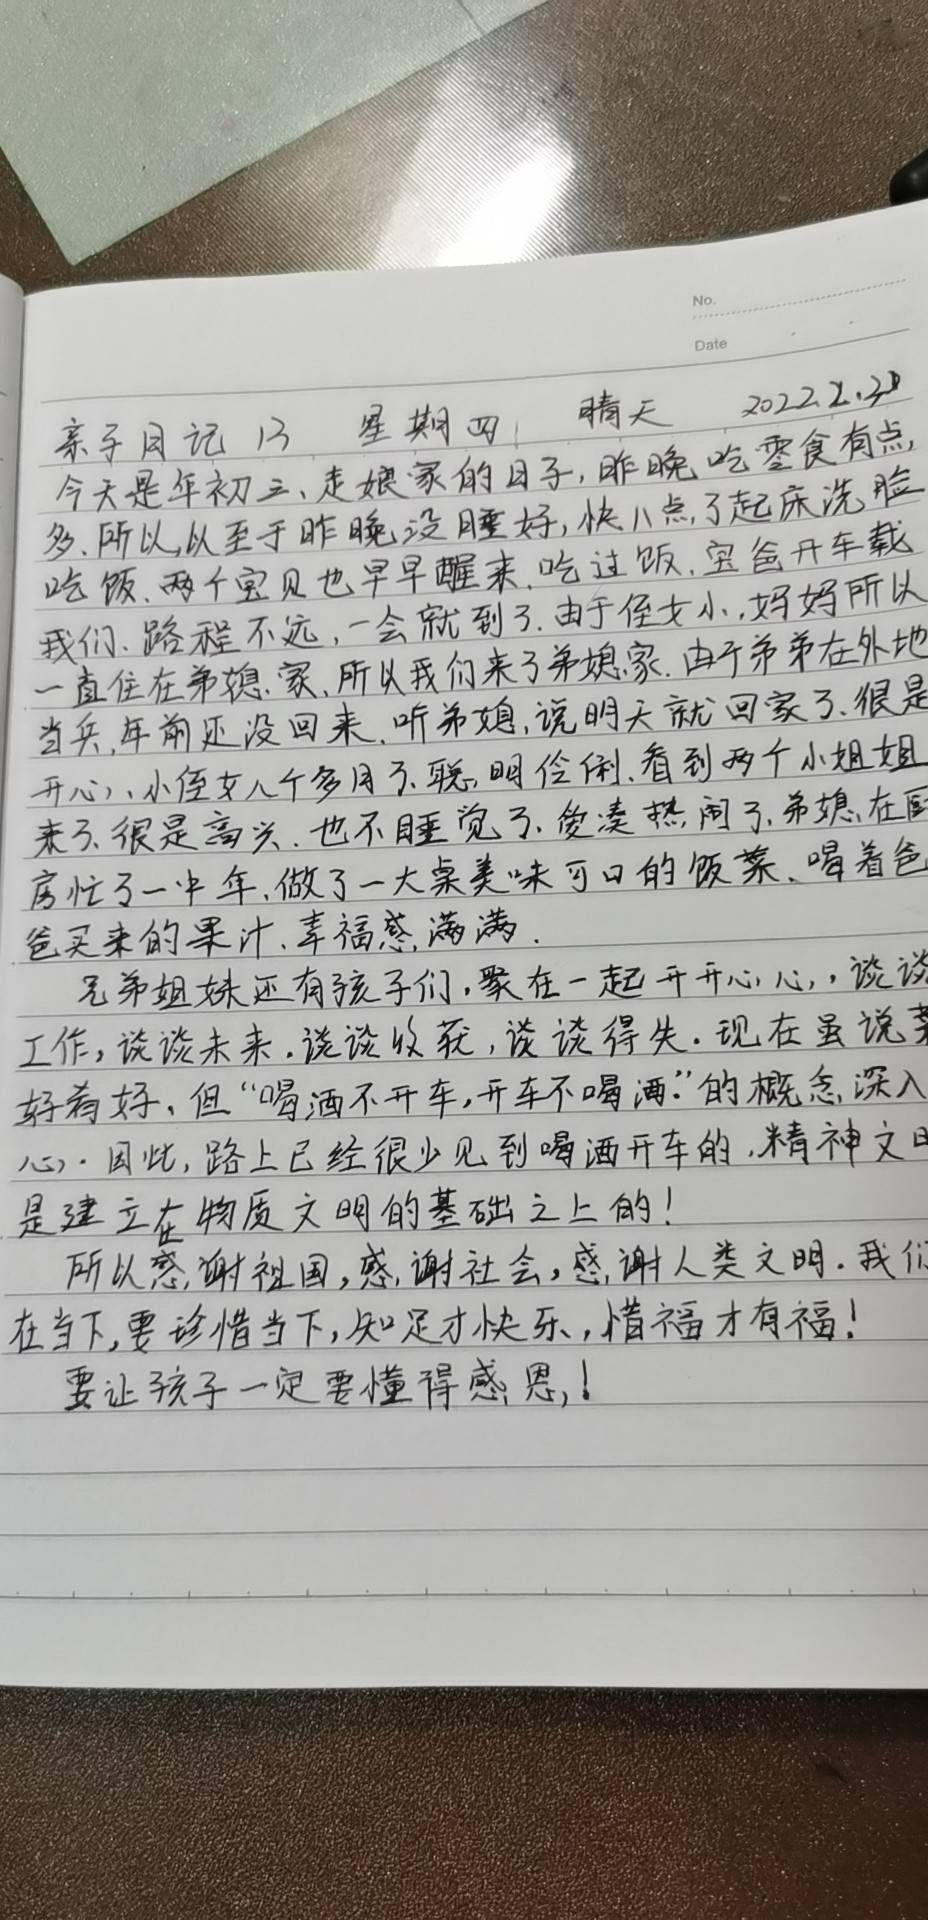 No.
Date
亲子日记13 星期四 晴天 2022.2.3日
今天是年初三、走娘家的日子,昨晚吃零食有点
多、所以,以至于昨晚没睡好,快八点了起床洗脸
吃饭、两个宝贝也早早醒来、吃过饭、宝爸开车载
我们、路程不远,一会就到了.由于侄女小,妈妈所以
一直住在弟媳家、所以我们来了弟媳家.由于弟弟在外地
当兵,年前还没回来、听弟媳,说明天就回家了、很是
开心、小侄女八个多月了、聪明伶俐、看到两个小姐姐
来了、很是高兴、也不睡觉了、爱凑热闹了、弟媳在厨
房忙了一中年、做了一大桌美味可口的饭菜、喝着爸
爸买来的果汁、幸福感满满.
兄弟姐妹还有孩子们,聚在一起开开心心,,谈谈
工作,谈谈未来.谈谈收获,谈谈得失.现在虽说菜
好肴好、但“喝酒不开车,开车不喝酒.”的概念深入
心.因此,路上已经很少见到喝酒开车的,精神文明
是建立在物质文明的基础之上的!
所以感谢祖国,感谢社会,感谢人类文明.我们
在当下,要珍惜当下,知足才快乐,惜福才有福!
要让孩子一定要懂得感恩,!